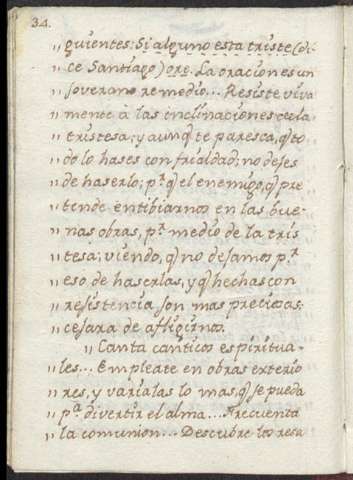 34.
„ guientes: Si alguno esta triste (di-
„ ce Santiago) ore. La oracion es un
„ soverano remedio... Resiste viva
„ mente à las inclinaciones de la
„ tristesa; y aunq̃ te paresca, q̃ to
„ do lo hases con frialdad; no dejes
„ de haserlo; pʳ q̃ el enemigo, q̃ pre
„ tende entibiarnos en las bue-
„ nas obras, pʳ medio de la tris
„ tesa; viendo, q̃ no dejamos pʳ
„ eso de haserlas, y q̃ hechas con
„ resistencia son mas preciosas;
„ cesara de afligirnos.
„ Canta canticos espiritua-
„ les... Empleate en obras exterio
„ res, y varialas lo mas, q̃ se pueda
„ pᵃ. divertir el alma... Frecuenta
„ la comunion... Descubre los resa